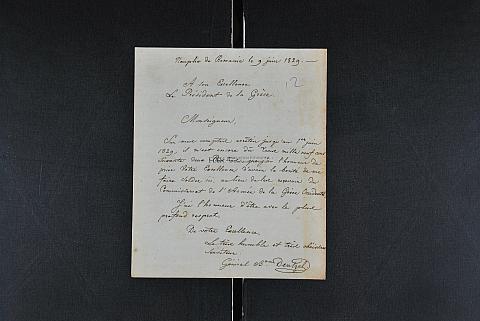 Nauplie de Romanie le 9 juin 1829.
2
A Son Excellence
Le Président de la Grèce.
Monseigneur,
Sur mon compte arrêté jusqu'au 1er juin
1829, il m'est encore dû mille neuf cent
soixante deux l'honneur de
prier Votre Excellence d'avoir la bonté de me
faire solder ici, au lieu de les recevoir du
Commissariat de l'Armée de la Grèce Occidentale
J'ai l'honneur d'être avec le plus
profond respect.
De votre Excellence
Le très humble et très obéissant
Serviteur
Général Bon Dentzel